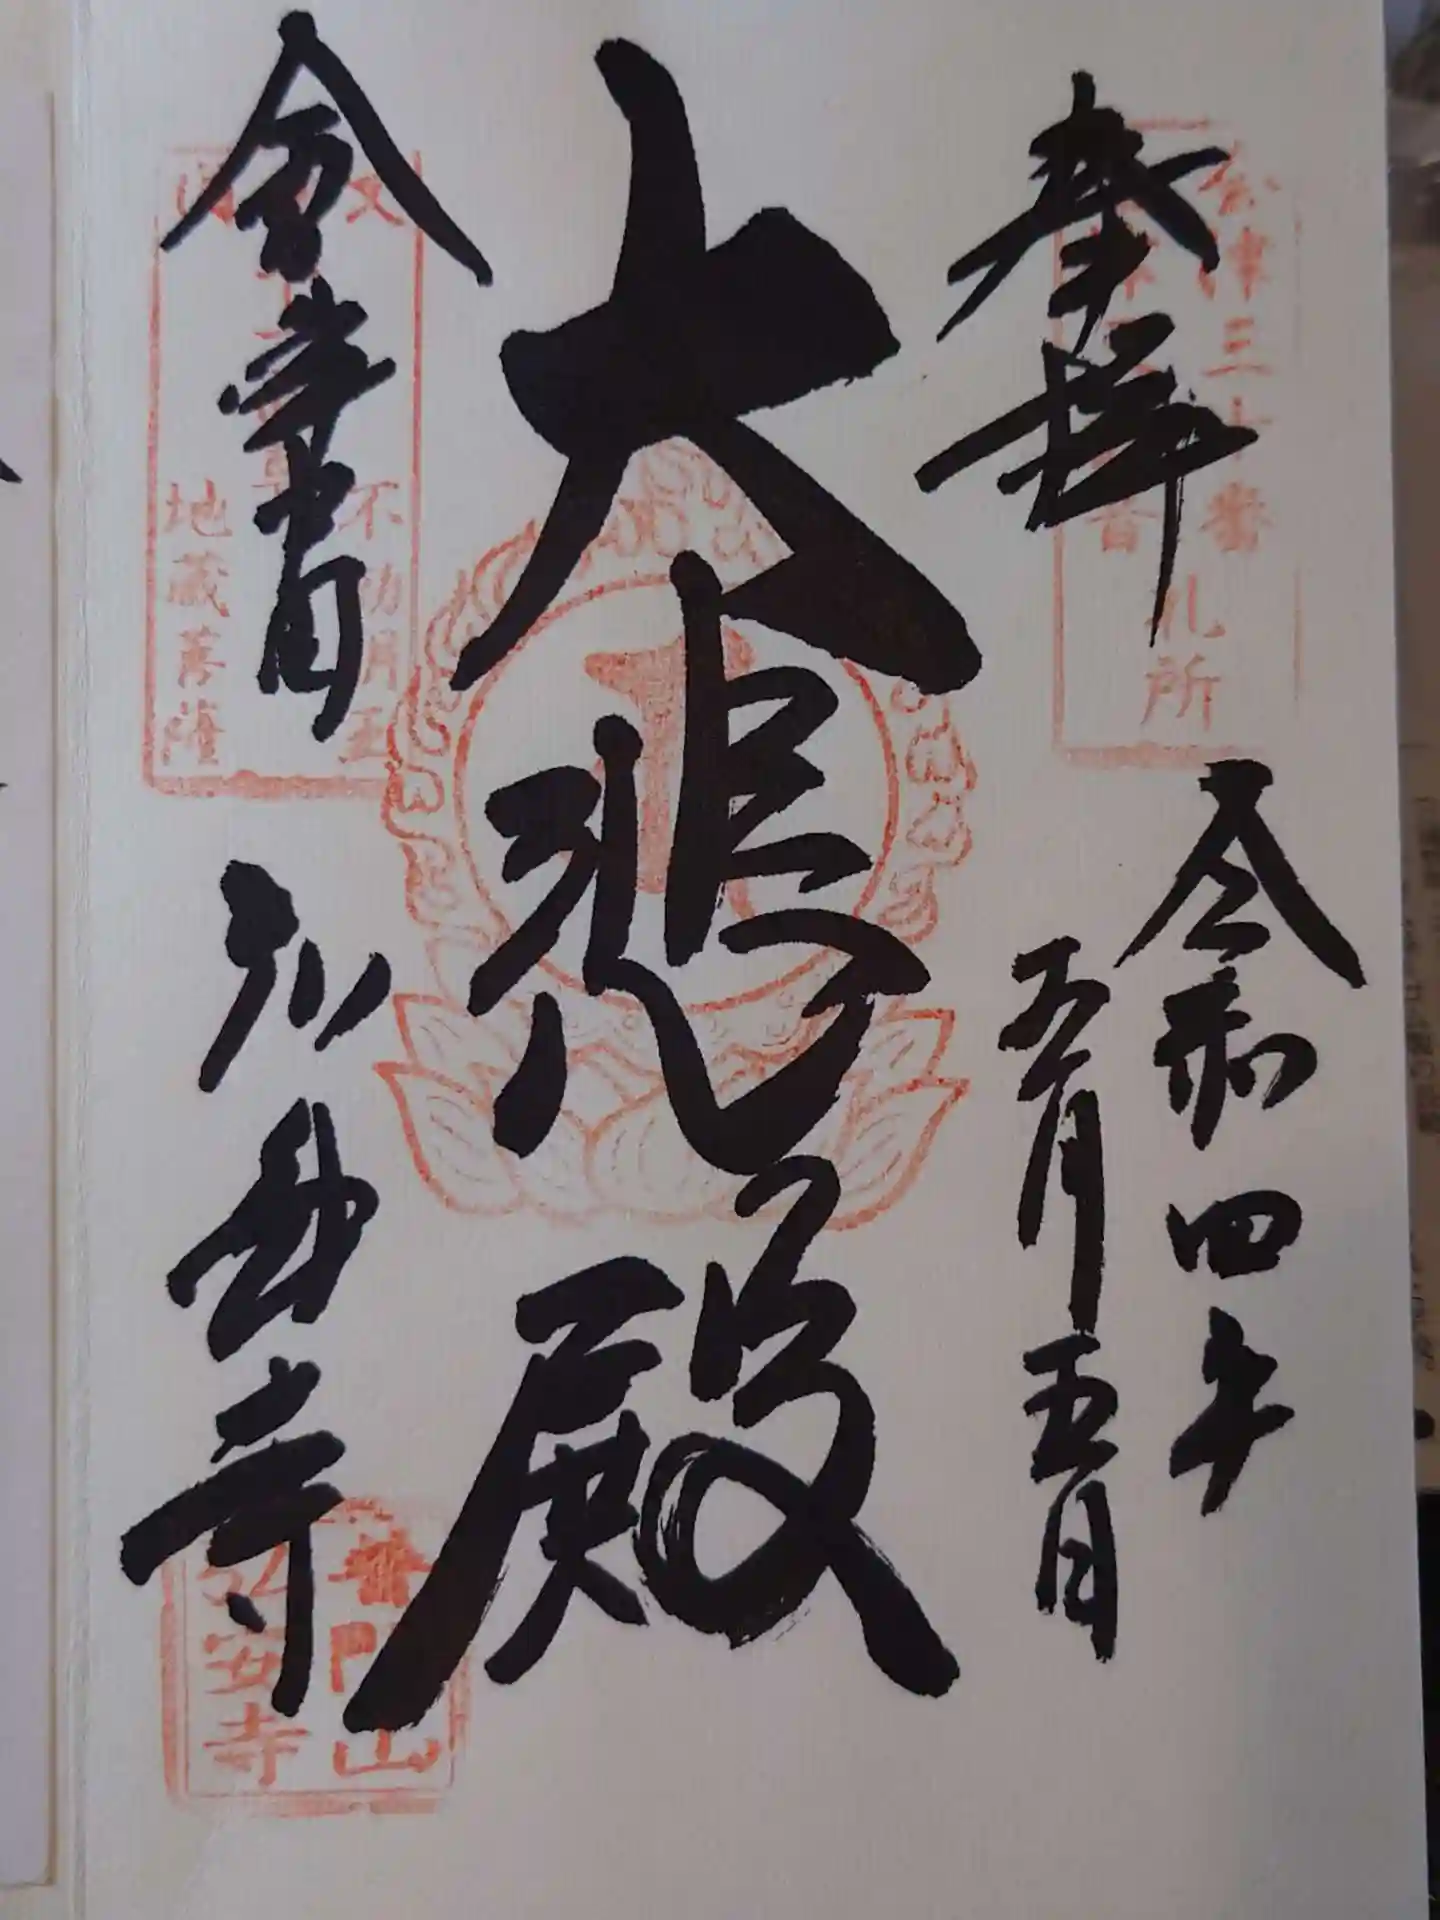 奉拝
令和四年
五月五日
大悲殿
会津
弘安寺
会津三十三番
札所
不動明王
地蔵菩薩
普門山
弘安寺